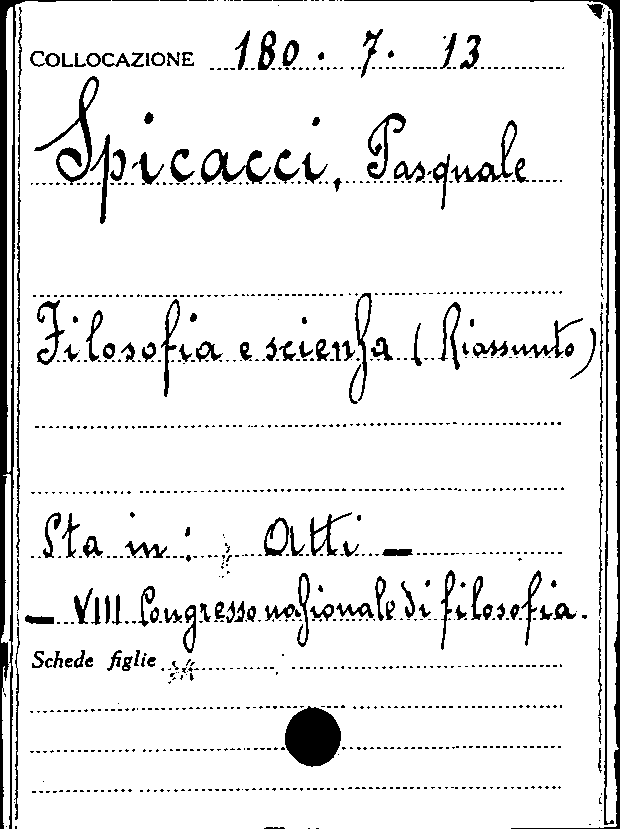 COLLOCAZIONE 180. 7. 13
Spicacci, Pasquale
Filosofia e scienza (Riassunto)
Sta in: Atti —
— VIII Congresso nazionale di filosofia.
Schede figlie